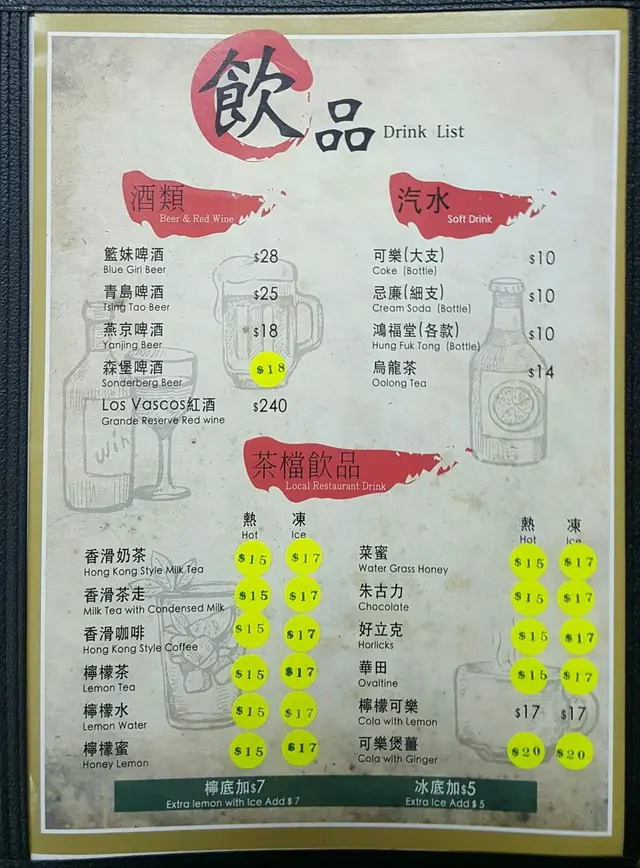 飲品 Drink List
酒類
Beer & Red Wine
籃妹啤酒 $28
Blue Girl Beer
青島啤酒 $25
Tsing Tao Beer
燕京啤酒 $18
Yanjing Beer
森堡啤酒 $18
Sonderberg Beer
Los Vascos紅酒 $240
Grande Reserve Red wine
Win
汽水
Soft Drink
可樂(大支) $10
Coke (Bottle)
忌廉(細支) $10
Cream Soda (Bottle)
鴻福堂(各款) $10
Hung Fuk Tong (Bottle)
烏龍茶 $14
Oolong Tea
茶檔飲品
Local Restaurant Drink
熱 凍
Hot Ice
香滑奶茶 $15 $17
Hong Kong Style Milk Tea
香滑茶走 $15 $17
Milk Tea with Condensed Milk
香滑咖啡 $15 $17
Hong Kong Style Coffee
檸檬茶 $15 $17
Lemon Tea
檸檬水 $15 $17
Lemon Water
檸檬蜜 $15 $17
Honey Lemon
熱 凍
Hot Ice
菜蜜 $15 $17
Water Grass Honey
朱古力 $15 $17
Chocolate
好立克 $15 $17
Horlicks
華田 $15 $17
Ovaltine
檸檬可樂 $17 $17
Cola with Lemon
可樂煲薑 $20 $20
Cola with Ginger
檸底加$7 冰底加$5
Extra lemon with Ice Add $7 Extra Ice Add $5